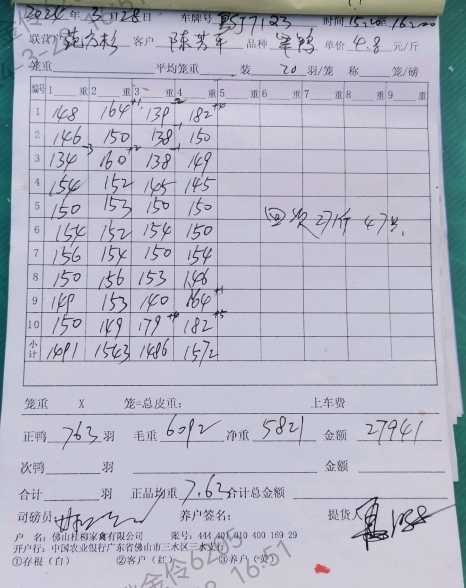 2024年3月28日 车牌号 粤J7123 时间 15:20-16:200
联营户 范方杉 客户 陈芳军 品种 单鸭 单价 4.8 元/斤
笼重 平均笼重 装 20 羽/笼 称 笼/磅
编号 1 重 2 重 3 重 4 重 5 重 6 重 7 重 8 重 9 重
1 148 164 +1 139 -2 182 +10
2 146 150 138 -1 150
3 134 -3 160 +2 138 -1 149
4 154 152 145 145
5 150 153 150 150
6 154 152 154 150
7 156 154 150 154
8 150 156 153 146
9 149 153 140 164 +1
10 150 149 179 +9 182 +5
小计 1491 1543 1486 1572
27斤 47
笼重 X 笼=总皮重: 上车费
正鸭 763 羽 毛重 6092 净重 5821 金额 27941
次鸭 羽 金额
合计 羽 正品均重 7.63 合计总金额
司磅员: 养户签名: 提货人
户 名: 佛山桂柳家禽有限公司 账号: 444 401 010 400 169 29
开户行: 中国农业银行广东省佛山市三水区三水支行
①存根(白) ②客户(红) ③养户(黄)
16:51